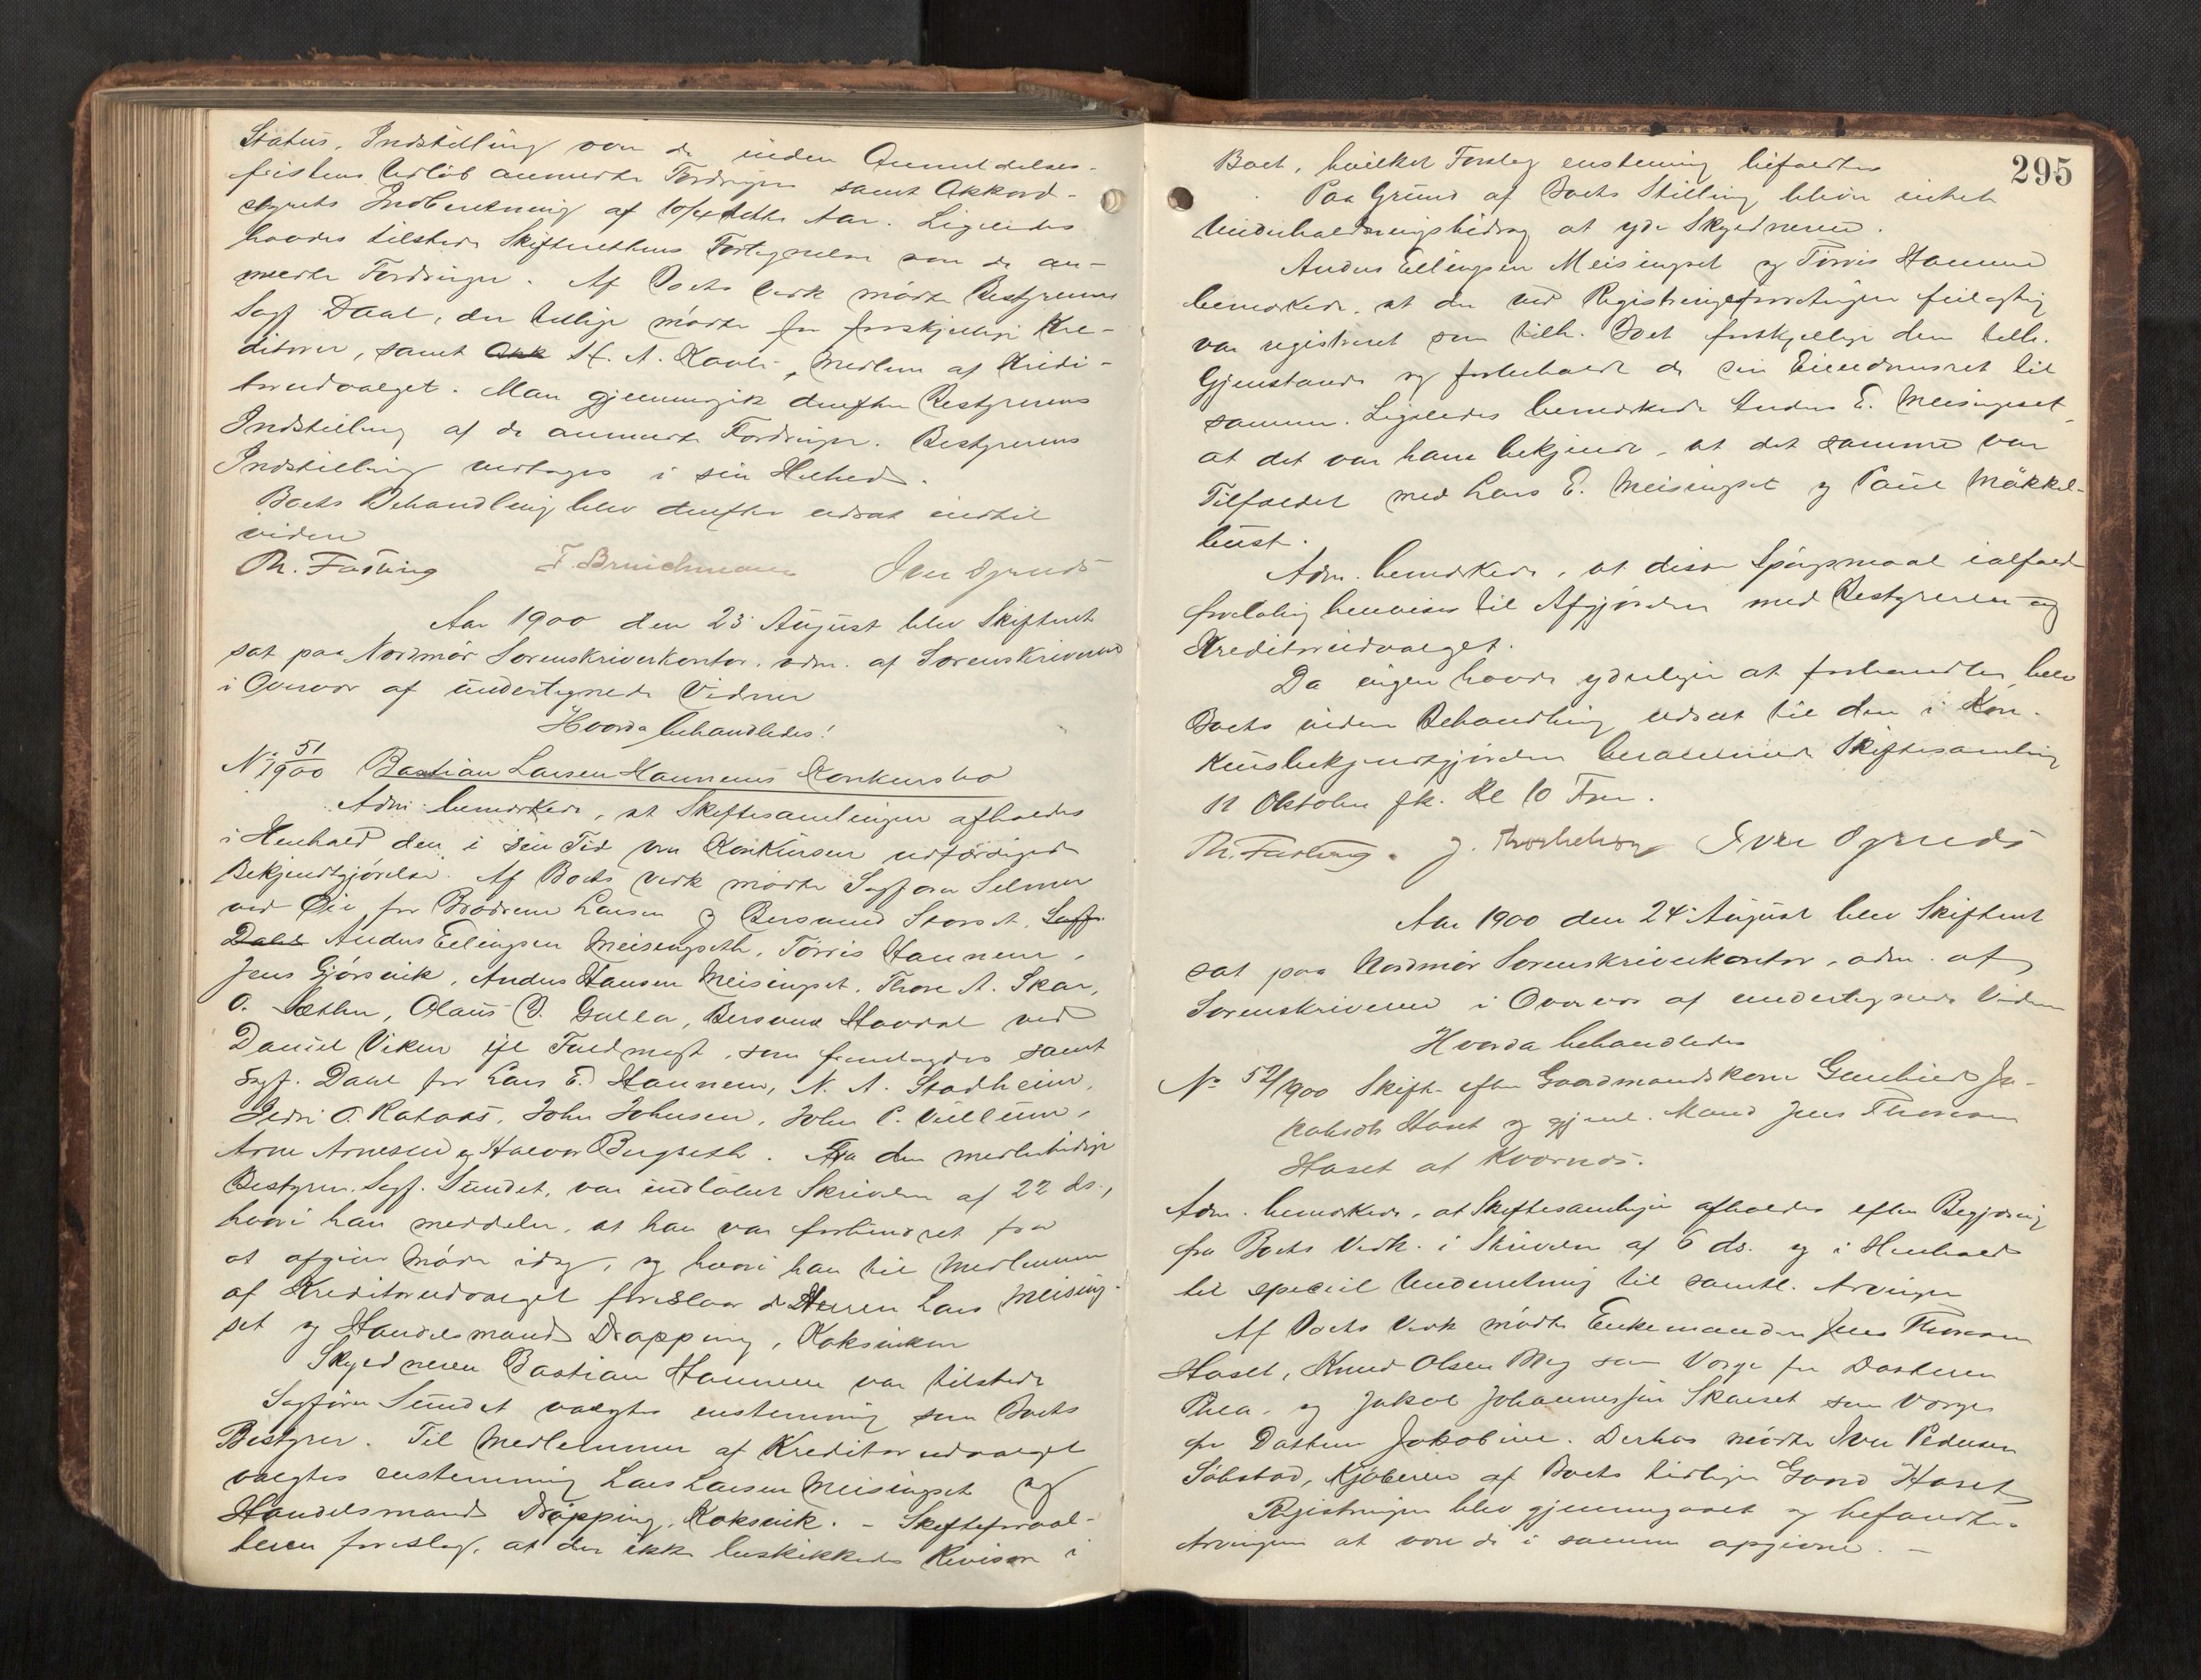 Status, Indstilling over de inden Anmeldelses-
fristens Udløb anmeldte Fordringer samt Akkord-
styrets Indberetning af 10/4 dette Aar. Ligeledes
havdes tilstede Skifterettens Fortegnelse over de an-
meldte Fordringer. Af Boets Vedk mødte Bestyreren
Sagf Daal, der tillige mødte for forskjellige Kre-
ditorer, samt H. A. Kaale, Medlem af Kredi-
torudvalget. Man gjennemgik derefter Bestyrerens
Indstilling af de anmeldte Fordringer. Bestyrerens
Indstilling vedtoges i sin Helhed.
Boets Behandling blev derefter udsat indtil
videre
Th. Fasting F. Bruichmann Iver Ogrnds
Aar 1900 den 23 August blev Skifteret
sat paa Nordmør Sorenskriverkontor, adm. af Sorenskriveren
i Overvær af undertegnede Vidner
Hvorda behandledes!
No 51/1900 Bastian Larsen Hannems Konkursbo
Adm. bemærkede, at Skiftesamlingen afholdes
i Henhold den i sin Tid om Konkursen udfærdigede
Bekjendtgjørelse. Af Boets Vedk mødte Sagfører Selmer
ved Øie for Brødrene Larsen og Bersvend Storset, Sagf.
Dahl Anders Ellingsen Meisingseth, Tørris Hannem,
Jens Gjørsvik, Anders Hansen Meisingset, Thore A. Skar,
O. Sæther, Olaus O. Gulla, Bersvend Hovdal ved
Daniel Viken ifl Fuldmagt, som fremlagdes samt
Sagf. Dahl for Lars E. Hannem, N. A. Stadheim,
Peder O. Rataas, John Johnsen, John P. Vullum,
Arne Arnesen og Halvor Bergseth. Fra den midlertidige
Bestyrer Sagf. Sundet, var indløbet Skrivelse af 22 ds.,
hvori han meddeler, at han var forhindret fra
at afgive Møde idag, og hvori han til Medlemmer
af Kreditorudvalget foreslaar d Herrer Lars Meising-
set og Handelsmand Drøpping, Koksviken
Skyldneren Bastian Hannem var tilstede
Sagfører Sundet valgtes enstemmig som Boets
Bestyrer. Til Medlemmer af Kreditorudvalget
valgtes enstemmig Lars Larsen Meisingset og
Handelsmand Drøpping, Koksvik. - Skifteforval-
teren foreslog, at der ikke beskikkedes Revisor i
295
Boet, hvilket Forslag enstemmig bifaldtes
Paa Grund af Boets Stilling blev intet
Underholdningsbidrag at yde Skyldneren.
Anders Ellingsen Meisingset og Tørris Hannem
bemærkede, at der ved Registreringsforretningen feilagtig
var registreret som tilh. Boet forskjellige dem tilh.
Gjenstande og forbeholdt de sin Eiendomsret til
samme. Ligeledes bemærkede Anders E. Meisingset
at det var ham bekjendt, at det samme var
Tilfældet med Lars E. Meisingset og Paul Møkkel-
bust.
Adm. bemærkede, at disse Spørgsmaal ialfald
foreløbig henvises til Afgjørelse med Bestyreren og
Kreditorudvalget.
Da ingen havde yderligere at forhandle, blev
Boets videre Behandling udsat til den i Kon-
kursbekjendtgjørelsen berammede Skiftesamling
11 Oktober fk. Kl 10 Fm.
Th. Fasting. J. Iver Ogrnds
Aar 1900 den 24 August blev Skifteret
sat paa Nordmør Sorenskriverkontor, adm. af
Sorenskriveren i Overvær af undertegnede Vidner
Hvorda behandledes
No 52/1900 Skifte efter Gaardmandskone Gunhild Ja-
kobsdt Haset og gjenl. Mand Jens Thoresen
Haset at Kvernes.
Adm. bemærkede, at Skiftesamlingen afholdes efter Begjæring
fra Boets Vedk. i Skrivelse af 6 ds. og i Henhold
til speciel Underretning til samtl. Arvinger
Af Boets Vedk mødte Enkemanden Jens Thoresen
Haset, Knud Olsen Meg som Værge for Datteren
Thea, og Jakob Johannessen Skarset som Værge
for Datteren Jakobine. Derhos mødte Iver Pedersen
Søbstad, Kjøberen af Boets tidligere Gaard Haset
Registreringen blev gjennemgaaet og befandtes
Arvingerne at være de i samme opgivne. -